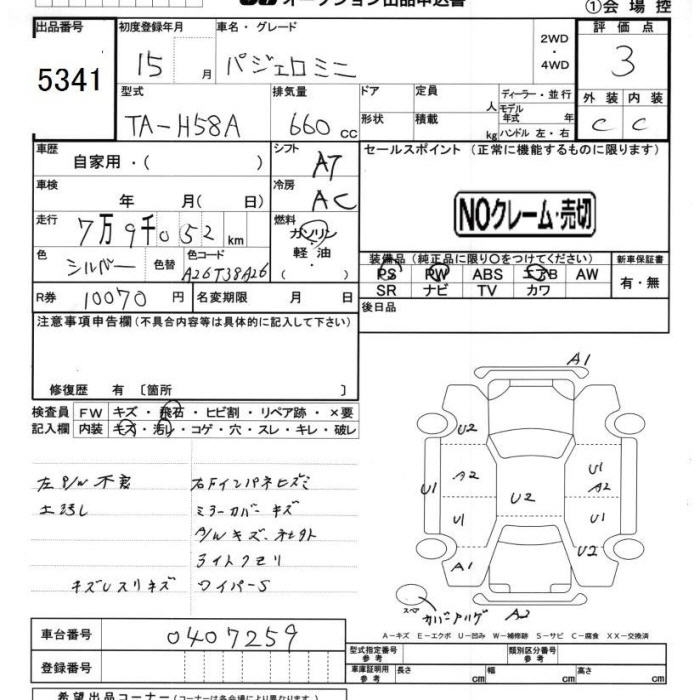 オークション出品申込書
①会場控
出品番号 初度登録年月 車名・グレード 2WD・4WD 評価点
5341 15 月 パジェロミニ 3
型式 排気量 ドア 定員 人 ディーラー・並行 外装 内装
TA-H58A 660cc 形状 積載 kg モデル年式 年 C C
ハンドル 左・右
車歴 自家用・( ) シフト AT セールスポイント (正常に機能するものに限ります)
車検 年 月(日) 冷房 AC
NOクレーム・売切
走行 7万9千052km 燃料 ガソリン・軽油・( )
色 シルバー 色替 色コード A26T38A26
装備品 (純正品に限り○をつけてください) 新車保証書
PS PW ABS エアB AW 有・無
SR ナビ TV カワ
R券 10070円 名変期限 月 日 後日品
注意事項申告欄(不具合内容等は具体的に記入して下さい)
修復歴 有 [箇所 ]
検査員 FW キズ・飛石・ヒビ割・リペア跡・×要
記入欄 内装 キズ・汚れ・コゲ・穴・スレ・キレ・破レ
左P/W不良 右Fインパネヒズミ
ミラーカバーキズ
A/Wキズ
ライトクモリ
キズUスリキズ ワイパーS
A1
U2
A2 U1
U1 U2 A2
U1 U1
A1 U2
スペア カバーアリ A2
A-キズ E-エクボ U-凹み W-補修跡 S-サビ C-腐食 XX-交換済
車台番号 0407259
型式指定番号 参考 類別区分番号 参考
登録番号 車庫証明用 参考 長さ cm 幅 cm 高さ cm
希望出品コーナー (コーナーは各会場により異なります)